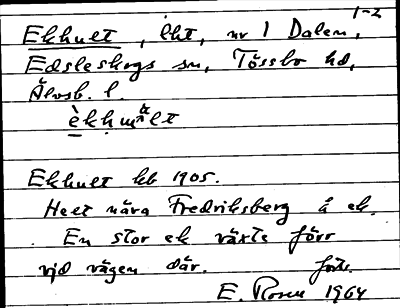 1-2
Ekhult, lht, nr 1 Dalen,
Edsleskogs sn, Tössbo hd,
Älvsb. l.
èkhu̷ält
Ekhult kb 1905.
Helt nära Fredriksberg å ek.
En stor ek växte förr
vid vägen där. forts.
E. Rosen 1964